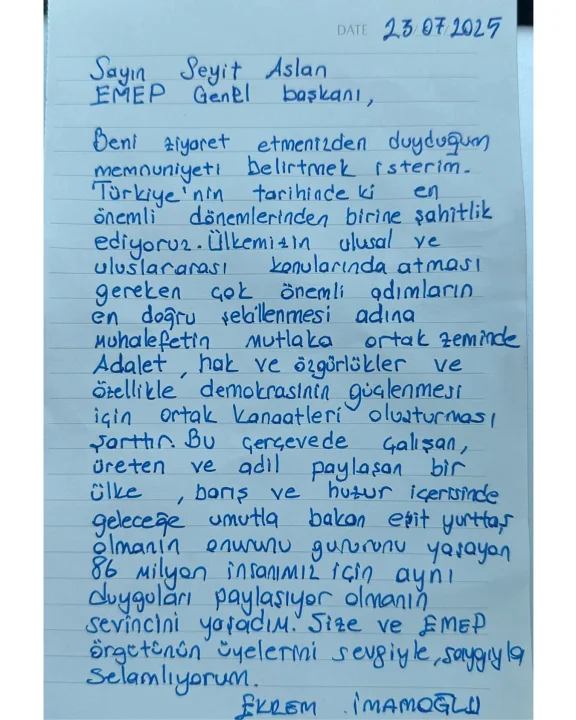 DATE 23.07.2025
Sayın Seyit Aslan
EMEP Genel başkanı,
Beni ziyaret etmenizden duyduğum
memnuniyeti belirtmek isterim.
Türkiye'nin tarihinde ki en
önemli dönemlerinden birine şahitlik
ediyoruz. Ülkemizin ulusal ve
uluslararası konularında atması
gereken çok önemli adımların
en doğru şekillenmesi adına
Muhalefetin mutlaka ortak zeminde
Adalet, hak ve özgürlükler ve
özellikle demokrasinin güçlenmesi
için ortak kanaatleri oluşturması
şarttır. Bu çerçevede çalışan,
üreten ve adil paylaşan bir
ülke, barış ve huzur içerisinde
geleceğe umutla bakan eşit yurttaş
olmanın onurunu gururunu yaşayan
86 milyon insanımız için aynı
duyguları paylaşıyor olmanın
sevincini yaşadım. Size ve EMEP
örgütünün üyelerini sevgiyle, saygıyla
selamlıyorum.
EKREM İMAMOĞLU